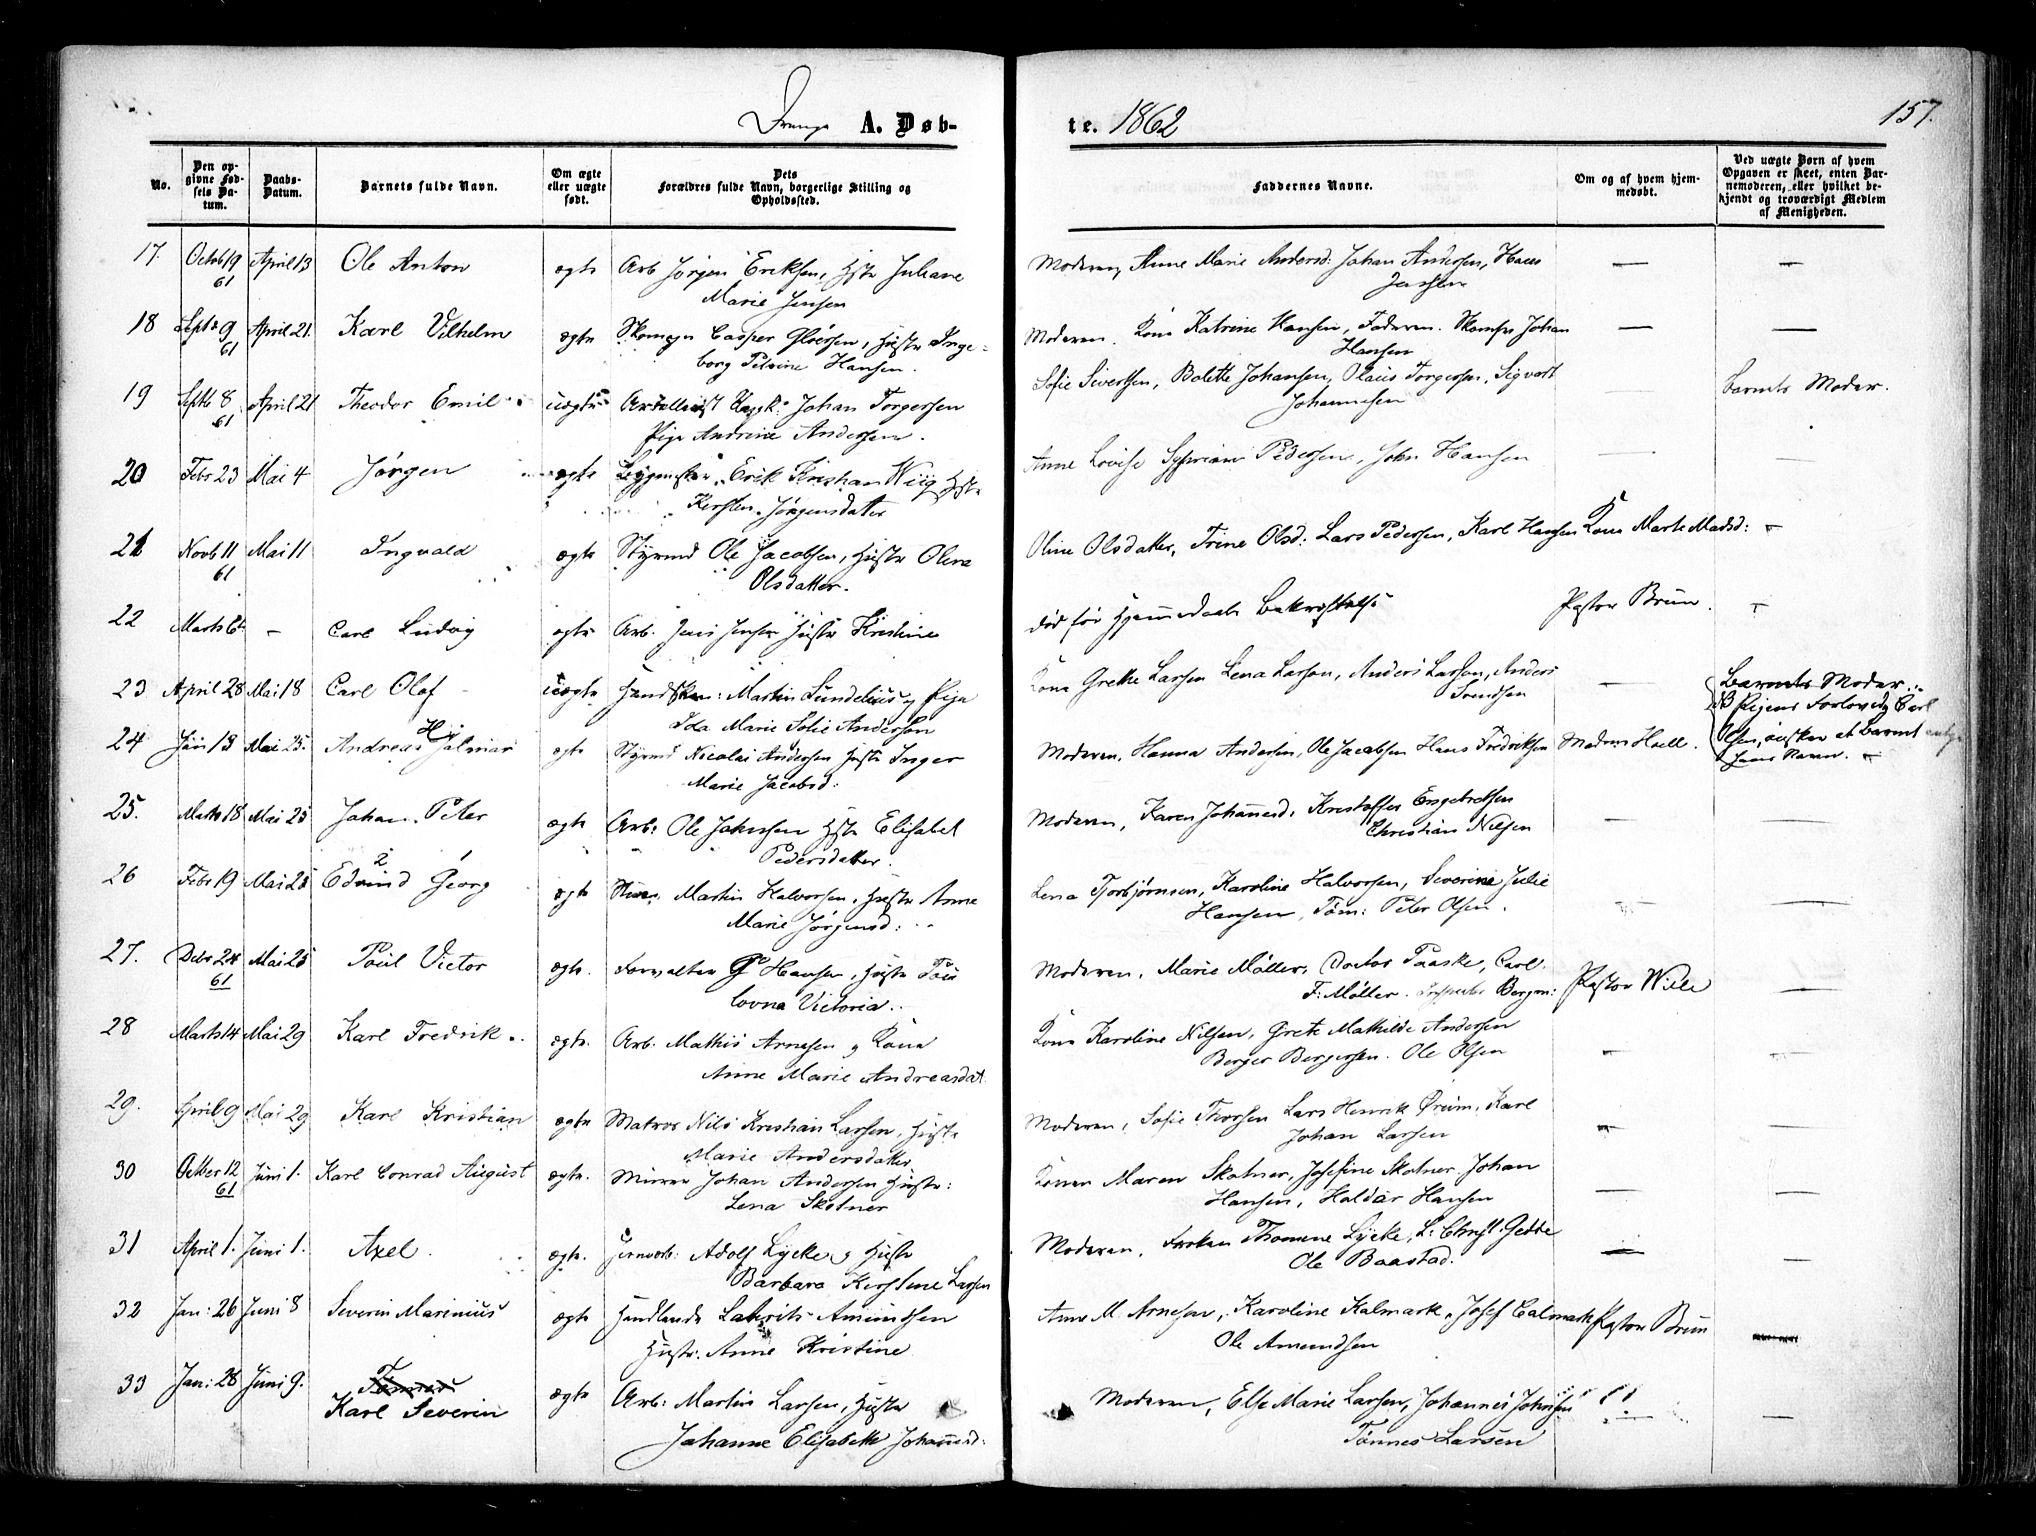 Drenge A. Døb-
te. 1862
157.
No.
Den op-
givne Fød-
sels Da-
tum.
Daabs-
Datum.
Barnets fulde Navn.
Om ægte
eller uægte
født.
Dets
Forældres fulde Navn, borgerlige Stilling og
Opholdssted.
Faddernes Navne.
Om og af hvem hjem-
medøbt.
Ved uægte Børn af hvem
Opgaven er skeet, enten Bar-
nemoderen, eller hvilket be-
kjendt og troværdigt Medlem
af Menigheden.
17. Octob 19 April 13 Ole Anton ægte Arb Jørgen Eriksen, Hstr Juliane Moderen, Anne Marie Andersd: Johan Andersen, Hans — —
61 Marie Jensen Jensen
18 Septr 9 April 21. Karl Vilhelm ægte Casper Hustr Inge- Moderen. Kone Katrine Hansen, Faderen. Johan — —
61 borg Petrine Hansen. Hansen
19 Septb 8 April 21 Theodor Emil uægte Johan Torgersen Sofie Sivertsen, Bolette Johansen, Olaus Torgersen, Sigvart — barnets Moder.
61 Pige Andrine Andersen. Johannesen
20 Febr 23 Mai 4 Jørgen ægte Erik Kristian Wiig Hstr Anne Lovise Pedersen, John Hansen — —
Kersten Jørgensdatter
21 Novb 11 Mai 11 Ingvald ægte Styrmd Ole Jacobsen, Hustr Olena Oline Olsdatter, Trine Olsd: Lars Pedersen, Karl Hansen Kone Marte Madsd: —
61 Olsdatter.
22 Marts 6 — Carl Ludvig ægte Arb. Jens Jensen Hustr Kristine død før Hjemmedaabs Bekræftelse Pastor Brun. —
23 April 28 Mai 18 Carl Olaf uægte Martin Lundelius og Pige Kone Grethe Larsen Lena Larson, Anders Larson, Anders — Barnets Moder
Ida Marie Sofie Anderson Svendsen
NB Pigens Forlovede Carl
24 Jan 13 Mai 25. Andreas Hjalmar ægte Styrmd Nicolai Andersen Hustr Inger Moderen, Hanna Andersen, Ole Jacobsen Hans Fredriksen Madam Holl. Olsen, ønsker at barnet
Marie Jacobsd: hans Navn. —
25. Marts 18 Mai 25 Johan Peter ægte Arb: Ole Johnsen Hstr Elisabet Moderen, Karen Johannesd, Kristoffer Engebretsen — —
Pedersdatter. Christian Nilsen
26 Febr 19 Mai 25 Edvind Georg ægte Martin Halvorsen, Hustr Anne Lena Torbjørnsen, Karoline Halvorsen, Severine Julie — —
Marie Jørgensd: Hansen, Tøm: Peter Olsen.
27. Debr 24 Mai 25 Poul Victor ægte. Forvalter P Hansen, Hustr Moderen, Marie Møller, Doctor Paaske, Carl Pastor —
61 Victoria.. F: Møller. Bergm:
28 Marts 14 Mai 29 Karl Fredrik ægte. Arb. Mathis Arnesen og Kone Kone Karoline Nilsen, Grete Mathilde Andersen — —
Anne Marie Andreasdat Berger Bergersen. Ole Olsen
29. April 9 Mai 29 Karl Kristian ægte Matros Nils Kristian Larsen, Hustr Moderen, Sofie Thorsen Lars Henrik Ørum, Karl — —
Marie Andersdatter Johan Larsen
30 Octber 12 Juni 1. Karl Conrad August ægte. Murer Johan Andersen Hustr: Konen Maren Skotner, Josefine Skotner Johan — —
61 Lena Skotner Hansen, Haldar Hansen
31 April 1. Juni 1. Axel ægte. Jernarb: Adolf Lycke og Hustr Moderen, Frøken Thomine Lycke, L: Christ. Gedde — —
Barbara Kerstine Larsen Ole Baastad.
32 Jan: 26 Juni 8 Severin Marinius ægte Handlende Laurits Amundsen Anne M. Arnesen, Karoline Kalmark, Josef Calmark Pastor Brun —
Hustr: Anne Kristine Ole Amundsen
33 Jan: 28 Juni 9. Tønnes ægte Arb: Martin Larsen, Hustr Moderen, Else Marie Larsen, Johannes Johnsen " —
Karl Severin Johanne Elisabeth Johannesd: Tønnes Larsen